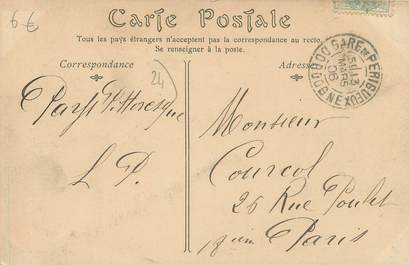 6 €
Carte Postale
Tous les pays étrangers n'acceptent pas la correspondance au recto.
Se renseigner à la poste.
Correspondance
Adresse
24
GARE DE PÉRIGUEUX
DORDOGNE
MARS
06
Pays Pittoresque
L P.
Monsieur
Courcol
26 Rue Poulet
18ième Paris